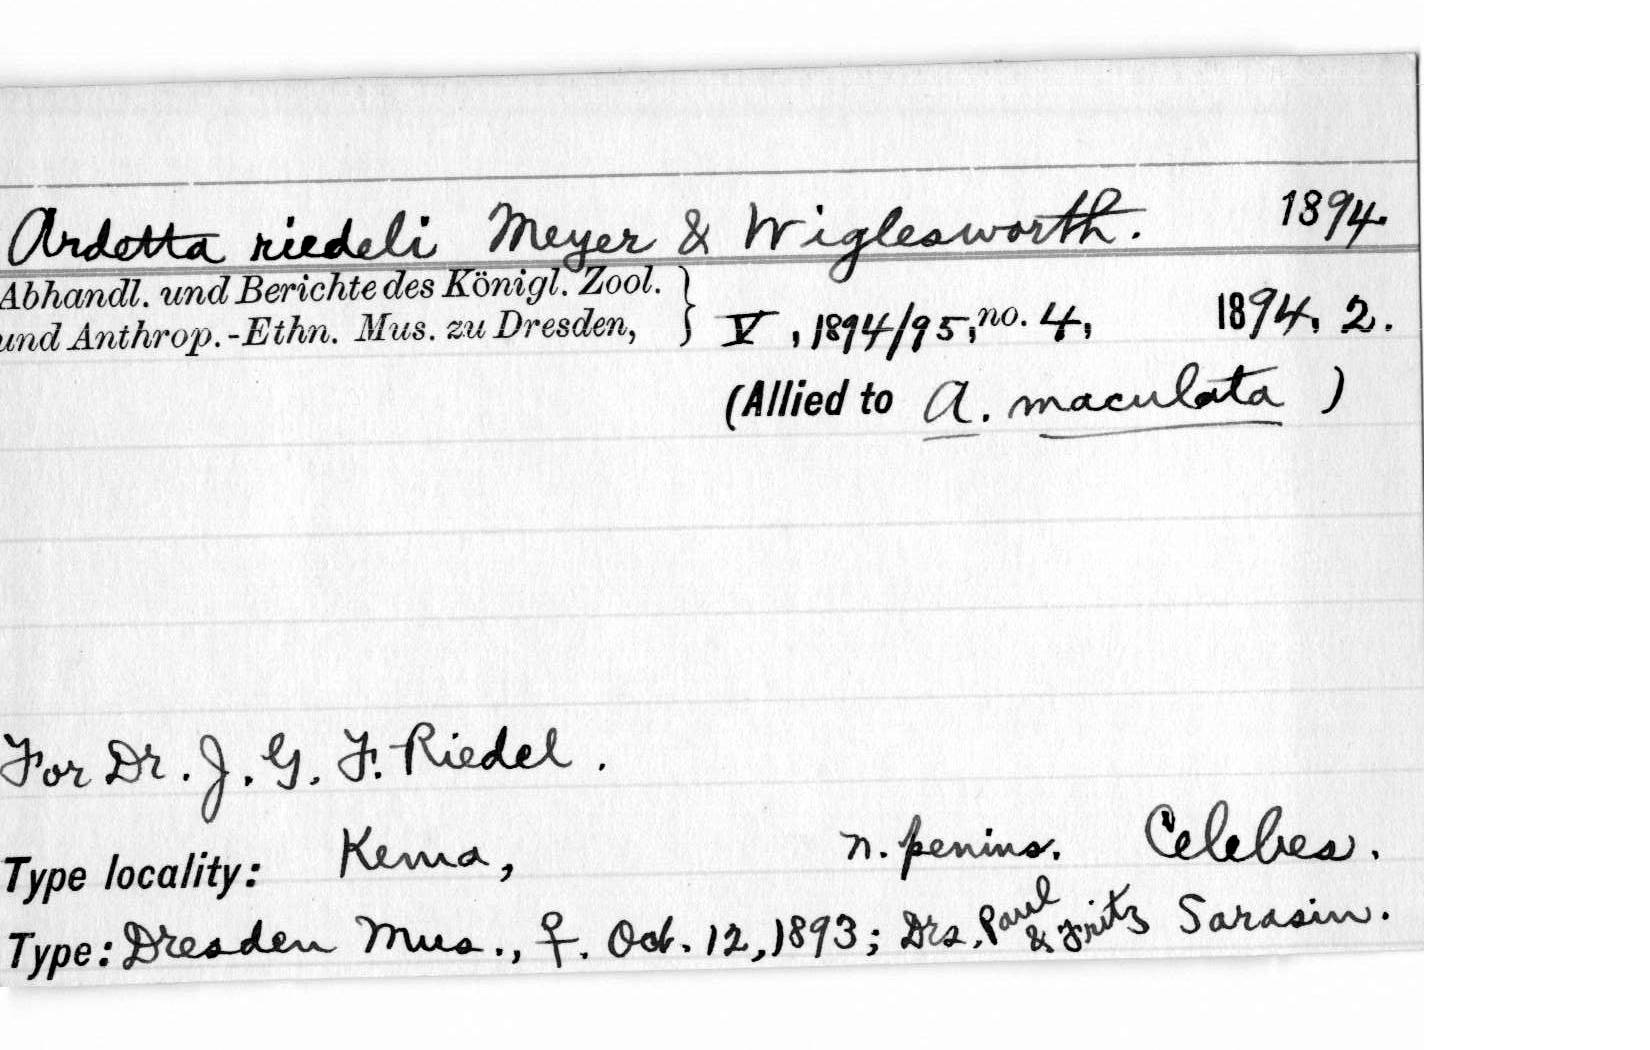 Ardetta riedeli Meyer & Wiglesworth. 1894.
Abhandl. und Berichte des Königl. Zool.
und Anthrop.-Ethn. Mus. zu Dresden, } V, 1894/95, no. 4, 1894, 2.
(Allied to A. maculata )
For Dr. J. G. F. Riedel.
Type locality: Kema, n. penins. Celebes.
Type: Dresden Mus., ♀. Oct. 12, 1893; Drs. Paul & Fritz Sarasin.